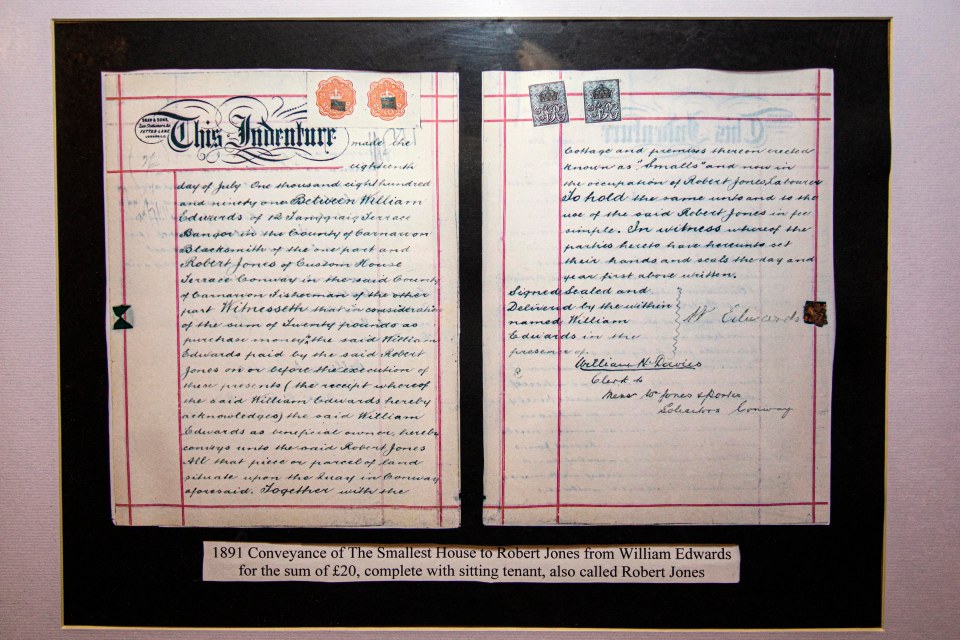 This Indenture made the
eighteenth
day of July One thousand eight hundred
and ninety one Between William
Edwards of 12 Terrace
Bangor in the County of Carnarvon
Blacksmith of the one part and
Robert Jones of Custom House
Terrace Conway in the said County
of Carnarvon Fisherman of the other
part Witnesseth that in consideration
of the sum of Twenty pounds as
purchase money the said William
Edwards paid by the said Robert
Jones on or before the execution of
these presents (the receipt whereof
the said William Edwards hereby
acknowledges) the said William
Edwards as beneficial owner hereby
conveys unto the said Robert Jones
All that piece or parcel of land
situate upon the Quay in Conway
aforesaid. Together with the
Cottage and premises thereon erected
known as "Smalls" and now in
the occupation of Robert Jones Labourer
To hold the same unto and to the
use of the said Robert Jones in fee
simple. In witness whereof the
parties hereto have hereunto set
their hands and seals the day and
year first above written.
Signed Sealed and
Delivered by the within
named William
Edwards in the
presence of
W Edwards
William H Davies
Clerk to
Jones &
Solicitors Conway
1891 Conveyance of The Smallest House to Robert Jones from William Edwards
for the sum of £20, complete with sitting tenant, also called Robert Jones